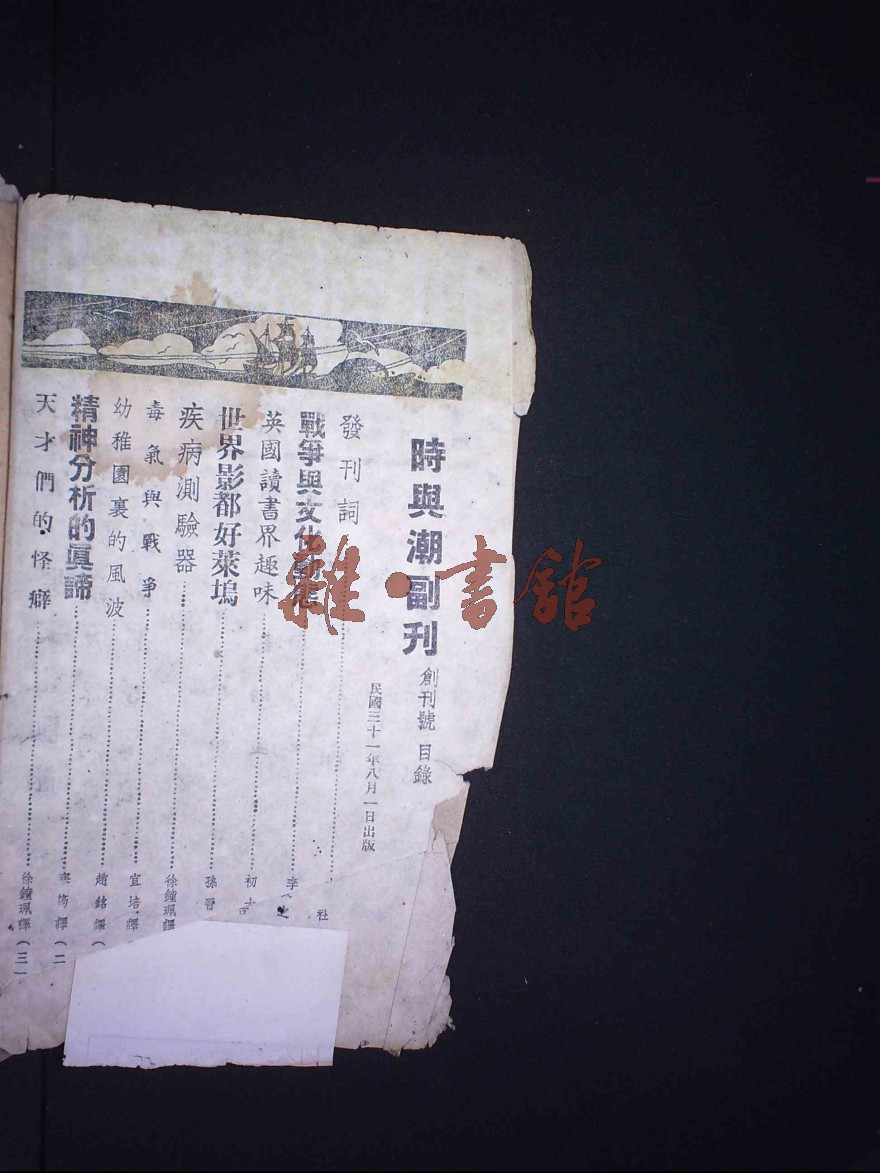 時與潮副刊
創刊號 目錄
民國三十一年八月一日出版
發刊詞 社
戰爭與文化動態 李
英國讀書界趣味 初
世界影都好萊塢 孫晉
疾病測驗器 徐鐘珮譯
毒氣與戰爭 宣培譯
幼稚園裏的風波 趙銘譯（
精神分析的眞諦 梅譯（二
天才們的怪癖 徐鐘珮譯（三
雜·書館